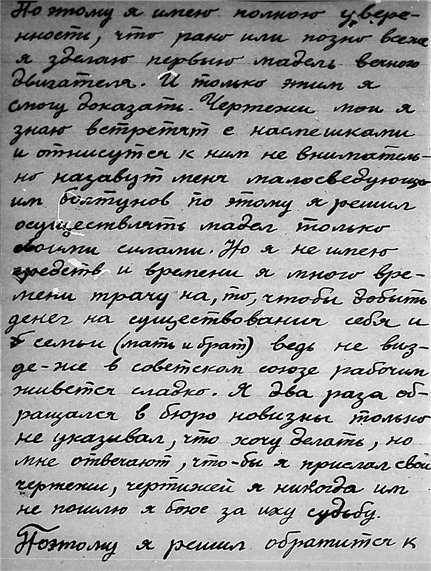 Поэтому я имею полною увере-
нность, что рано или позно всеже
я зделаю первыю мадель вечного
двигателя. И только этим я
смогу доказать. Чертежи мои я
знаю встретят с насмешками
и отнисутся к ним не вниматель-
но назавут меня малосведующо
им болтунов по этому я решил
осуществлять мадел только
своими силами. Но я не имею
средств и времени я много вре-
мени трачу на, то, чтобы добыть
денег на существования себя и
семьи (мать и брат) ведь не виз-
де-же в советском союзе рабочим
живется сладко. Я два раза об-
ращался в бюро новизны только
не указывал, что хочу делать, но
мне отвечают, что-бы я прислал свои
чертежи, чертижей я никогда им
не пошлю я боюс за иху судьбу.
Поэтому я решил обратится к